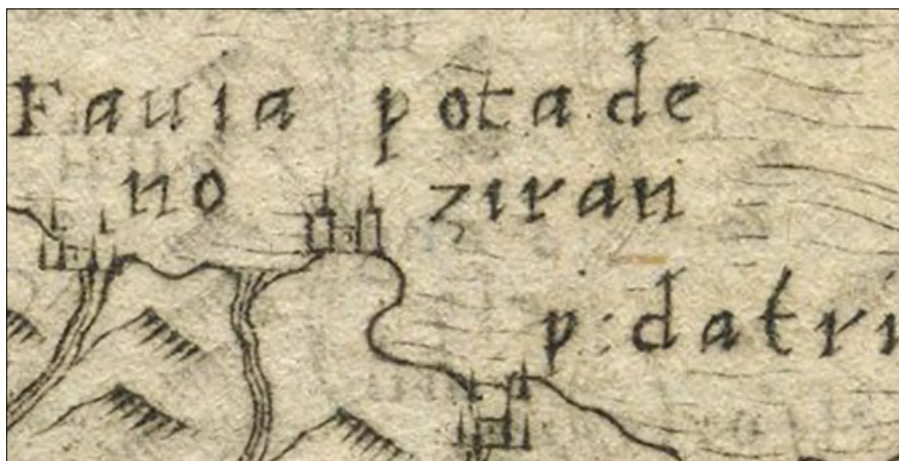 Fauia potade
no ziran
p: datri